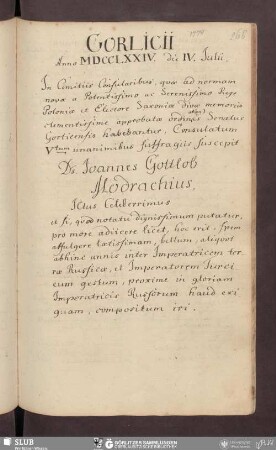 GORLICII
Anno MDCCLXXIV. die IV. Iulii
In Comitiis Consularibus, quae ad normam
novae a Potentissimo ac Serenissimo Rege
Poloniae et Electore Saxoniae divae memoriae
clementissime approbatae ordinis Senatus
Gorlicensis habebantur, Consulatum
Vtum unanimibus suffragiis suscepit
Ds. Ioannes Gottlob
Modrachius,
ICtus Celeberrimus
et si, quod notatu dignissimum putatur,
pro more adiicere licet, hoc erit, spem
affulgere laetissimam, bellum, aliquot
abhinc annis inter Imperatricem ter-
rae Russicae, et Imperatorem Turci
cum gestum, proxime in gloriam
Imperatricis Russorum haud exi
guam, compositum iri.
SLUB
Wir führen Wissen.
GÖRLITZER SAMMLUNGEN